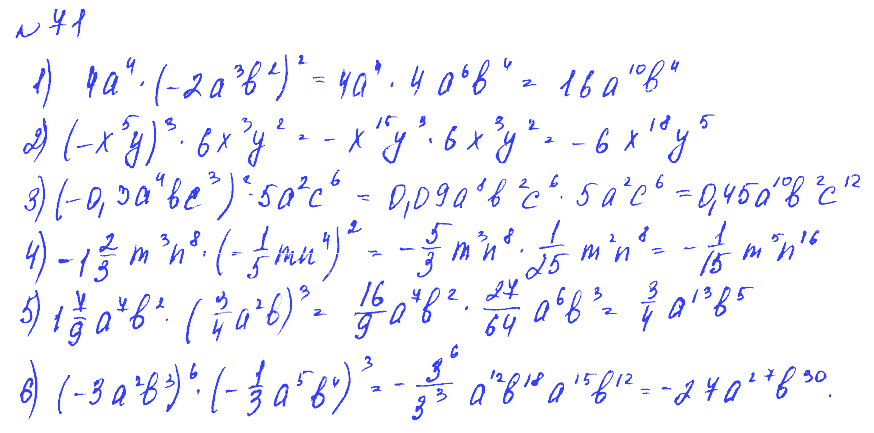 № 71
1) 4a⁴ · (-2a³b²)² = 4a⁴ · 4a⁶b⁴ = 16a¹⁰b⁴
2) (-x⁵y)³ · 6x³y² = -x¹⁵y³ · 6x³y² = -6x¹⁸y⁵
3) (-0,3a⁴bc³)² · 5a²c⁶ = 0,09a⁸b²c⁶ · 5a²c⁶ = 0,45a¹⁰b²c¹²
4) -1 2/3 m³n⁸ · (-1/5 mn⁴)² = -5/3 m³n⁸ · 1/25 m²n⁸ = -1/15 m⁵n¹⁶
5) 1 7/9 a⁷b² · (3/4 a²b)³ = 16/9 a⁷b² · 27/64 a⁶b³ = 3/4 a¹³b⁵
6) (-3a²b³)⁶ · (-1/3 a⁵b⁴)³ = -3⁶/3³ a¹²b¹⁸a¹⁵b¹² = -27a²⁷b³⁰.